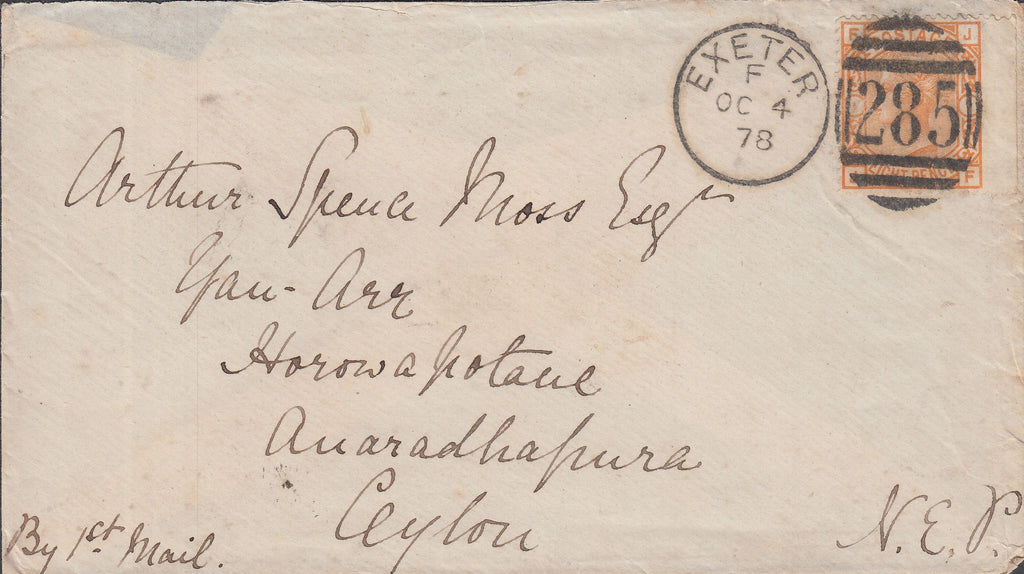 EXETER
F
OC 4
78
285
F J
POSTAGE
EIGHT PENCE
F
Arthur Spence Moss Esqr
Yan-Arr
Horowapotane
Anaradhapura
Ceylon
By 1st Mail.
N.E.P.